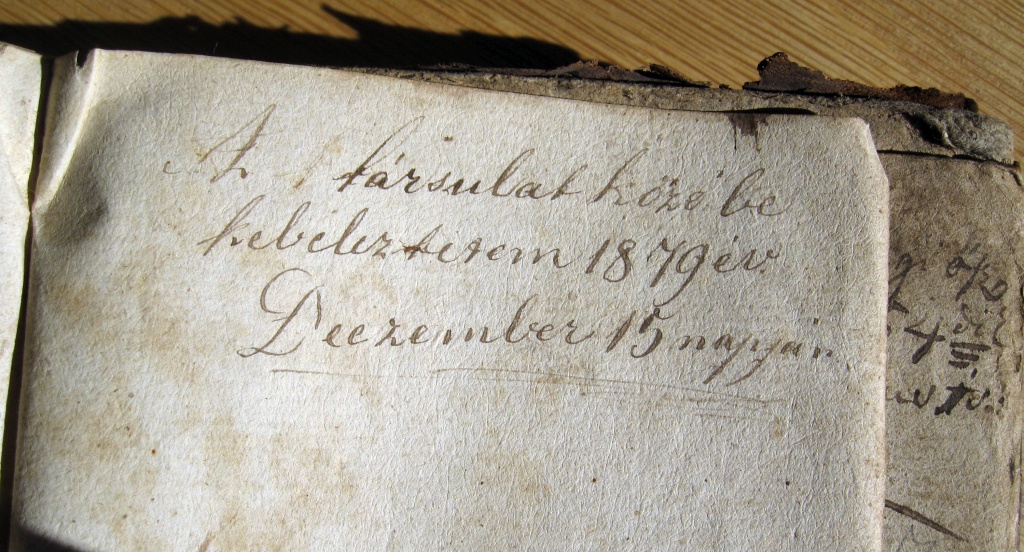 Az társulat közé be
kebeleztetem 1879 év
Deczember 15 napján